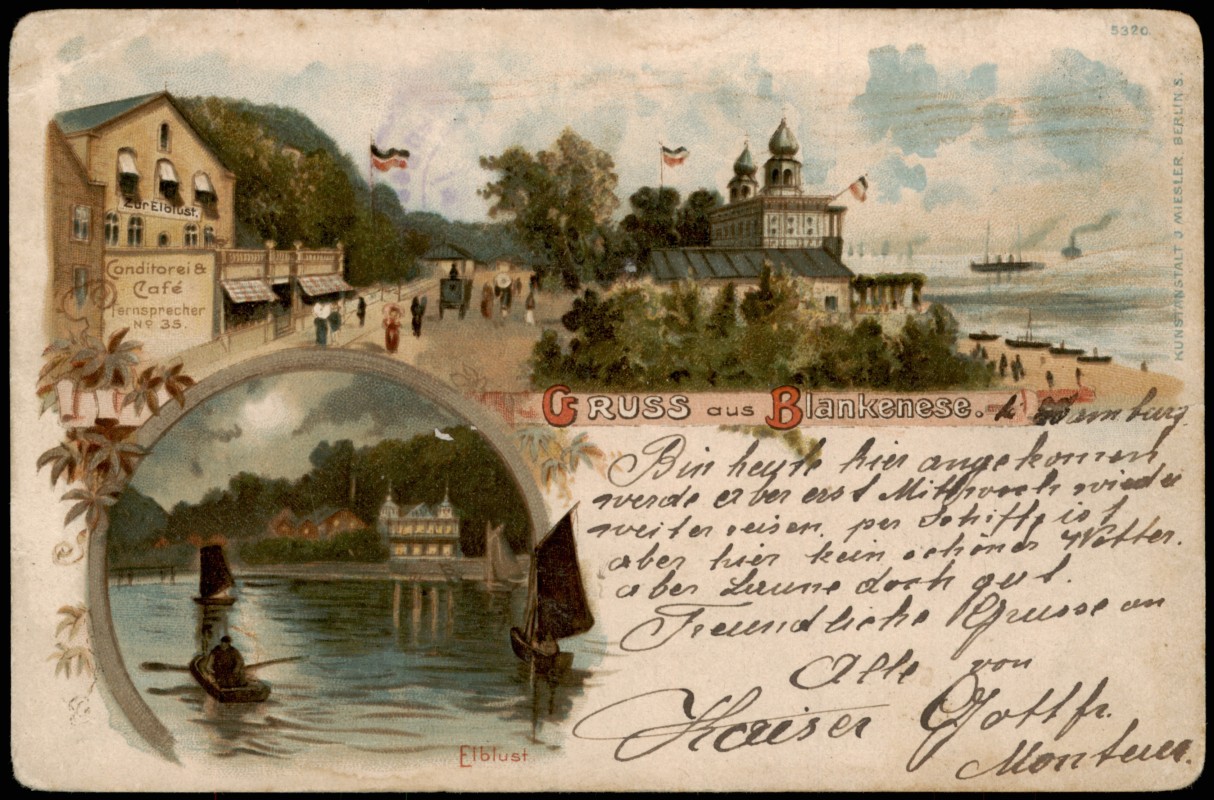 5320
KUNSTANSTALT J. MIESLER. BERLIN.S.
Zur Elblust.
Conditorei &
Café
Fernsprecher
No 35.
GRUSS aus Blankenese.
Hamburg
Bin heute hier angekomen
werde aber erst Mittwoch wieder
weiter reisen. per Schiff, ist
aber hier kein schönes Wetter.
aber Laune doch gut.
Freundliche Grüsse an
Alle von
Kaiser Gottfr.
Monteur.
Elblust